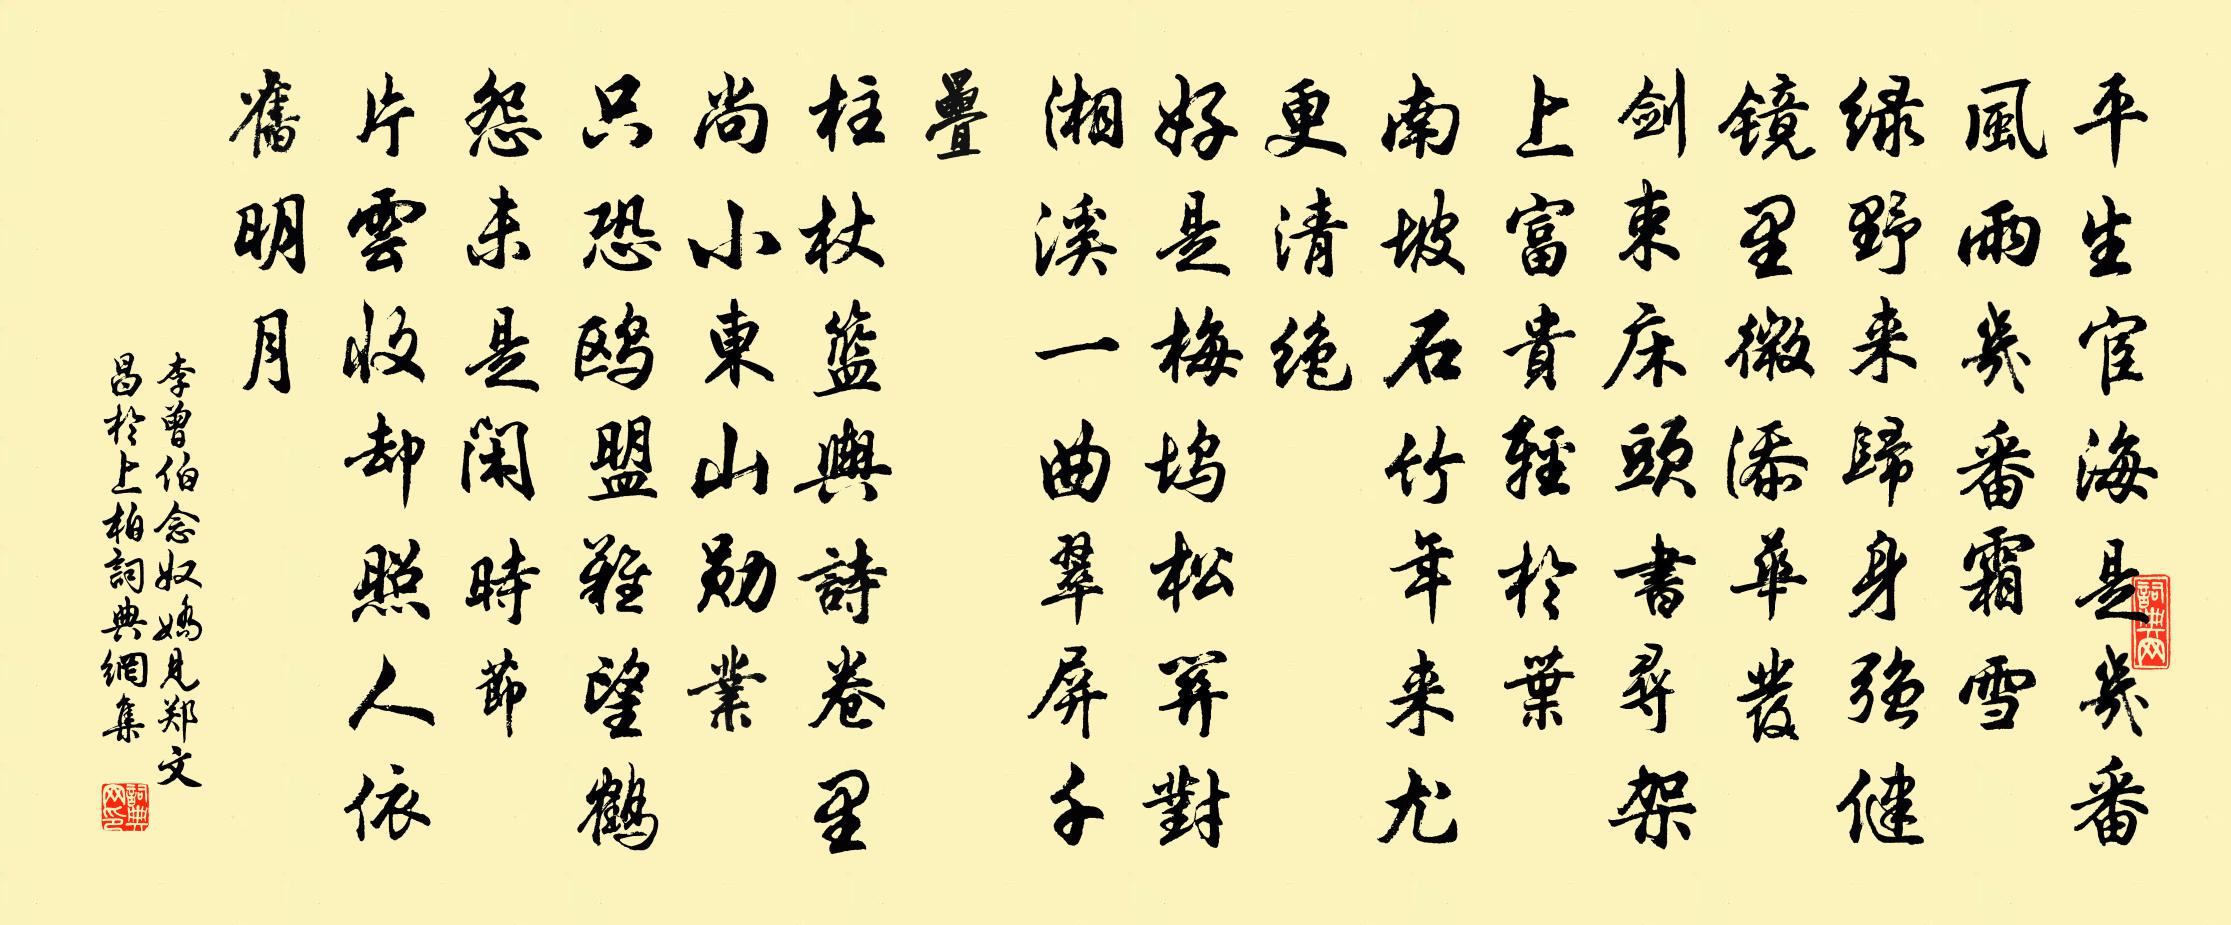 平生宦海是幾番
風雨幾番霜雪
緑野来歸身強健
镜里微添華發
劍束床頭書尋架
上富貴輕於葉
南坡石竹年来尤
更清绝
好是梅坞松関對
湘溪一曲翠屏千
疊
柱杖籃輿詩卷里
尚小東山勛業
只恐鸥盟難望鶴
怨未是闲時節
片雲收却照人依
舊明月
李曾伯念奴嬌見郑文
昌於上柏詞典網集
詞典网
詞典网印